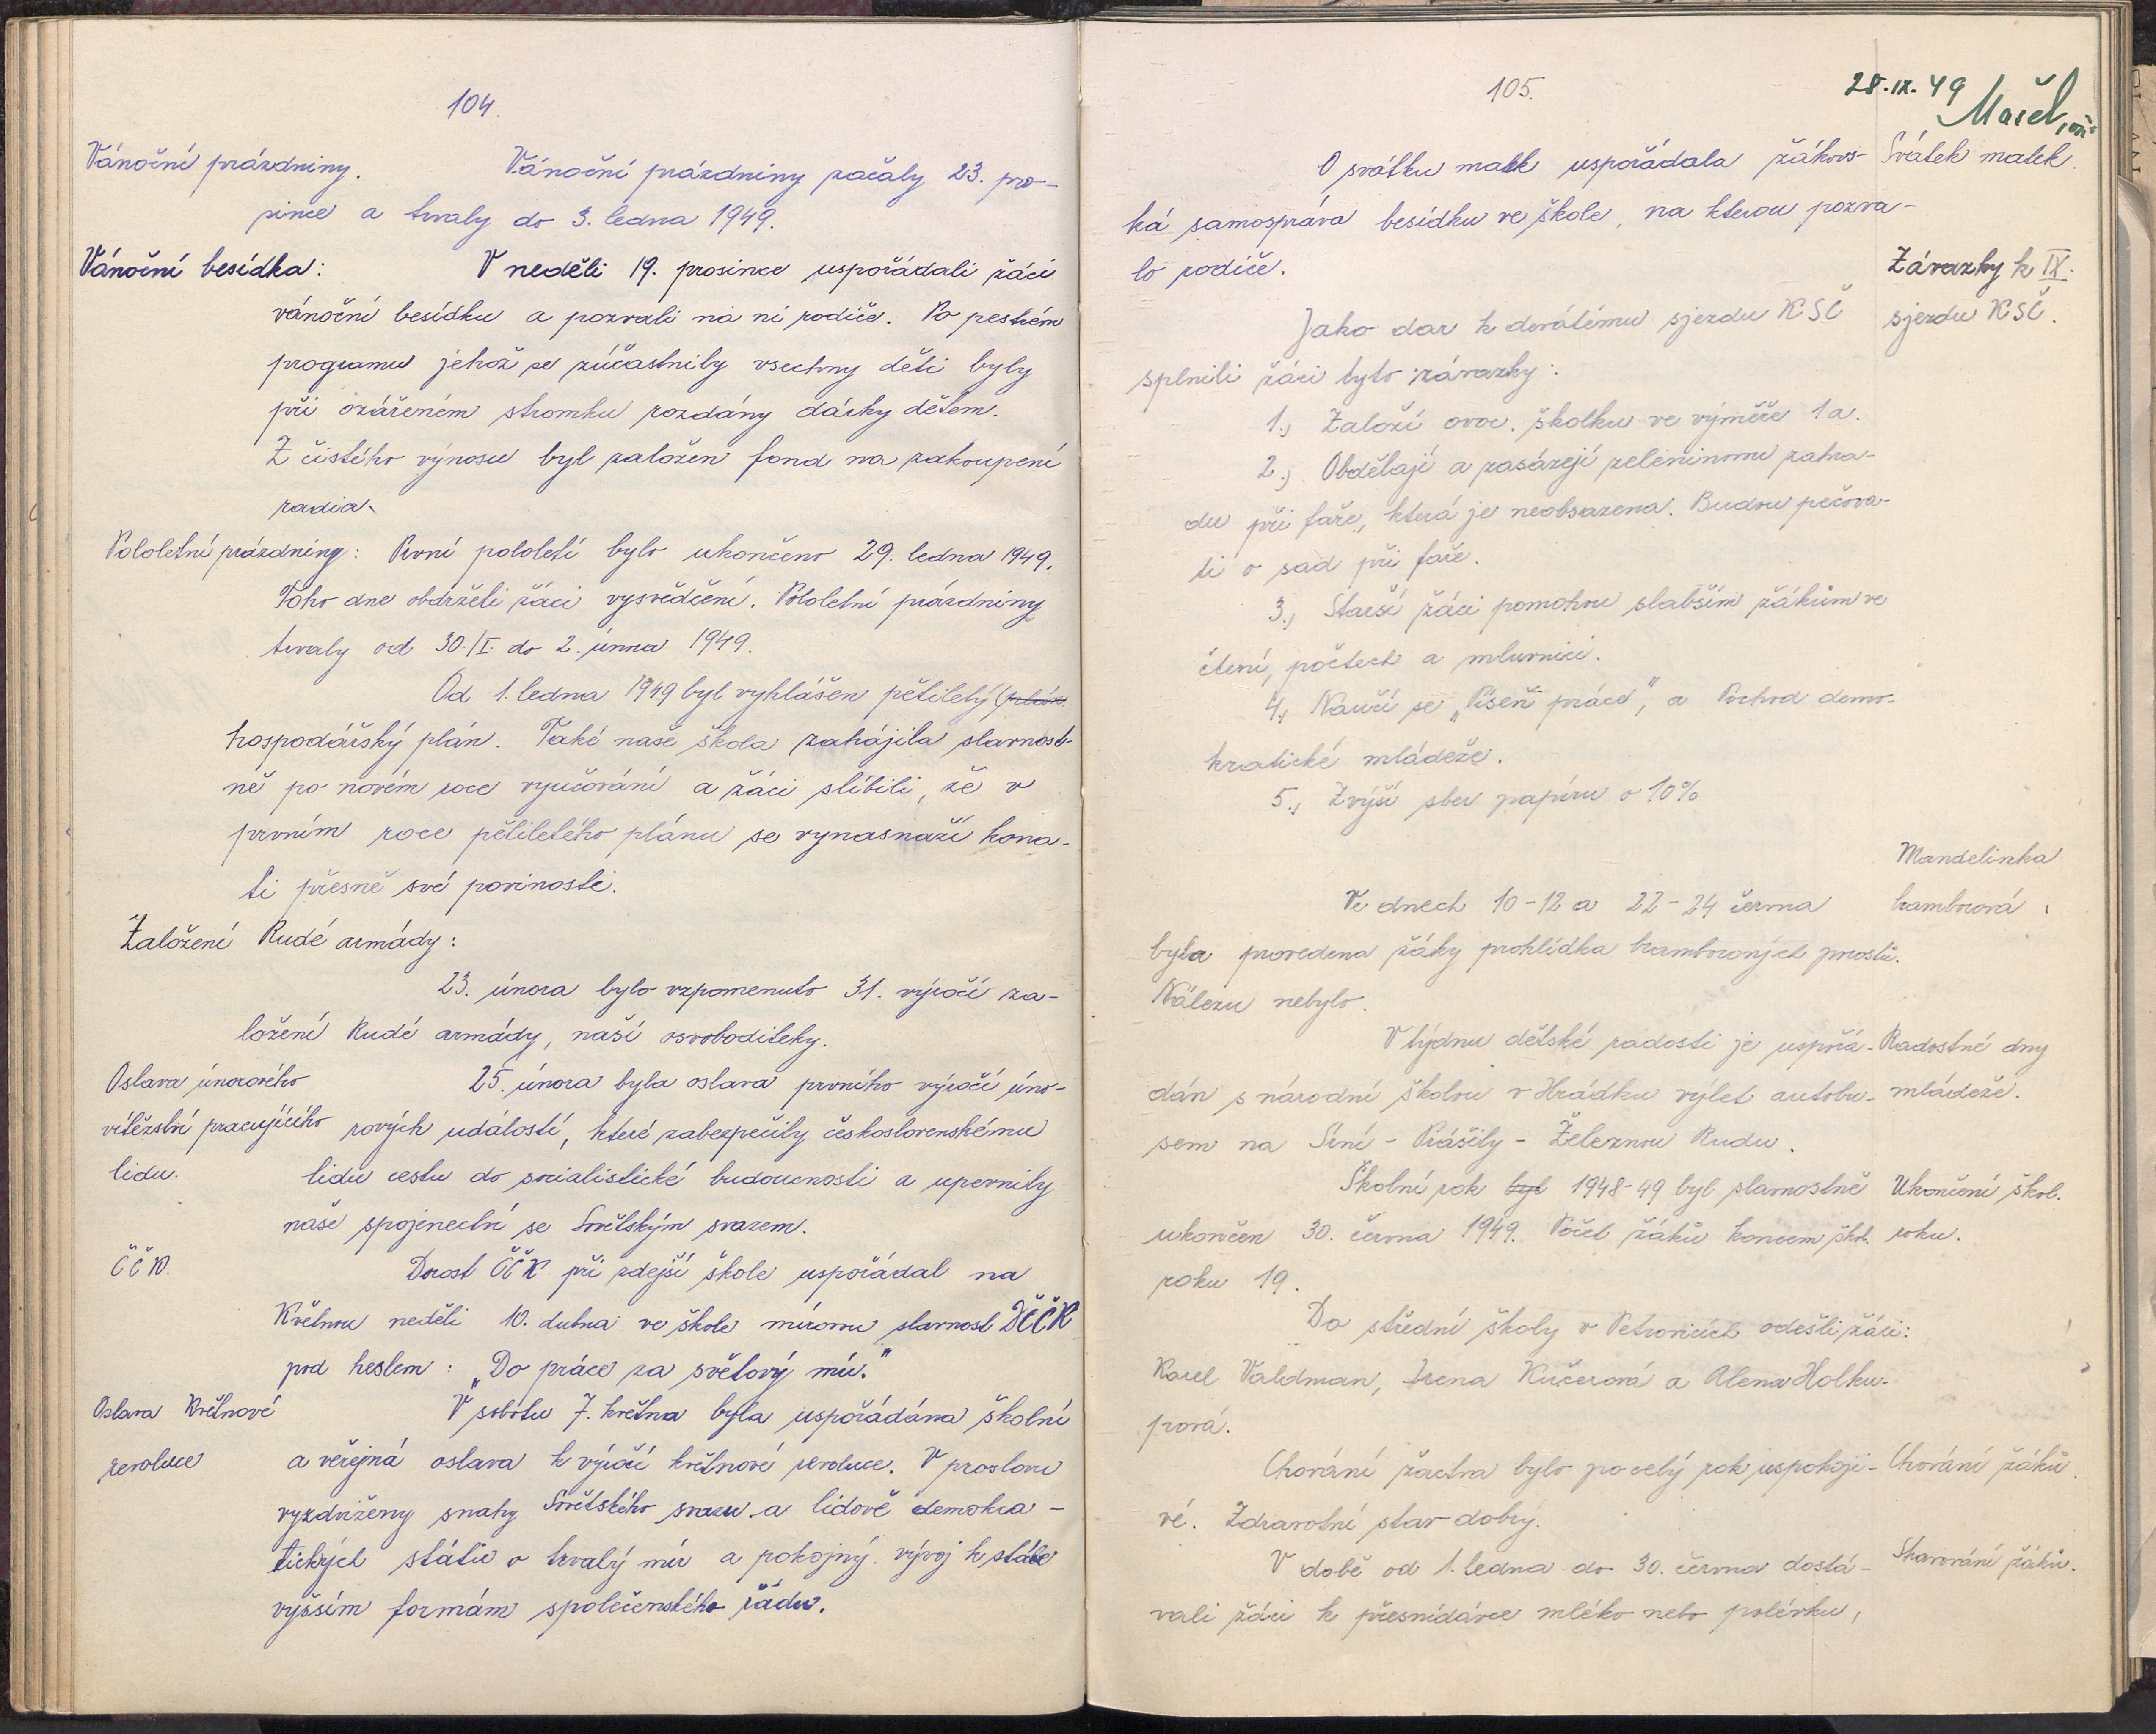 104.
Vánoční prázdniny. Vánoční prázdniny začaly 23. pro-
since a trvaly do 3. ledna 1949.
Vánoční besídka: V neděli 19. prosince uspořádali žáci
vánoční besídku a pozvali na ni rodiče. Po pestrém
programu jehož se zúčastnily vsechny děti byly
při ozářeném stromku rozdány dárky dětem.
Z čistého výnosu byl založen fond na zakoupení
radia.
Pololetní prázdniny: První pololetí bylo ukončeno 29. ledna 1949.
Toho dne obdrželi žáci vysvědčení. Pololetní prázdniny
trvaly od 30./I. do 2. února 1949.
Od 1. ledna 1949 byl vyhlášen pětiletý plán
hospodářský plán. Také naše škola zahájila slavnost-
ně po novém roce vyučování a žáci slíbili, že v
prvním roce pětiletého plánu se vynasnaží kona-
ti přesně své povinosti.
Založení Rudé armády:
23. února bylo vzpomenuto 31. výročí za-
ložení Rudé armády, naší osvoboditelky.
Oslava únorového 25. února byla oslava prvního výročí úno-
vítězství pracujícího rových událostí, které zabezpečily československému
lidu. lidu cestu do socialistické budoucnosti a upevnily
naše spojenectví se Sovětským svazem.
ČČK. Dorost ČČK při zdejší škole uspořádal na
Květnou neděli 10. dubna ve škole mírovou slavnost DČČK
pod heslem: „Do práce za světový mír."
Oslava Květnové V sobotu 7. května byla uspořádána školní
revoluce a veřejná oslava k výročí květnové revoluce. V proslovu
vyzdviženy snahy Sovětského svazu a lidově demokra-
tických států o trvalý mír a pokojný vývoj k stále
vyšším formám společenského řádu.
105.
28.IX.49
O svátku matek uspořádala žákovs- Svátek matek.
ká samospráva besídku ve škole, na kterou pozva-
lo rodiče.
Závazky k IX.
Jako dar k devátému sjezdu KSČ sjezdu KSČ.
splnili žáci tyto závazky:
1., Založí ovoc. školku ve výměře 1 a.
2., Obdělají a zasázejí zeleninovou zahra-
du při faře, která je neobsazena. Budou pečova-
ti o sad při faře.
3., Starší žáci pomohou slabším žákům ve
čtení, počtech a mluvnici.
4., Naučí se „Píseň práce", a Pochod demo-
kratické mládeže.
5., Zvýší sběr papíru o 10%
Mandelinka
Ve dnech 10-12 a 22-24 června bramborová
byla provedena žáky prohlídka bramborových porostů.
Nálezu nebylo.
V týdnu dětské radosti je uspořá- Radostné dny
dán s národní školou v Hrádku výlet autobu- mládeže.
sem na Srní - Prášily - Železnou Rudu.
Školní rok byl 1948-49 byl slavnostně Ukončení škol.
ukončen 30. června 1949. Počet žáků koncem škol. roku.
roku 19.
Do střední školy v Petrovicích odešli žáci:
Karel Valdman, Irena Kučerová a Alena Holku-
pová.
Chování žactva bylo po celý rok uspokoji- Chování žáků.
vé. Zdravotní stav dobrý.
V době od 1. ledna do 30. června dostá- Stravování žáků.
vali žáci k přesnídávce mléko nebo polévku,